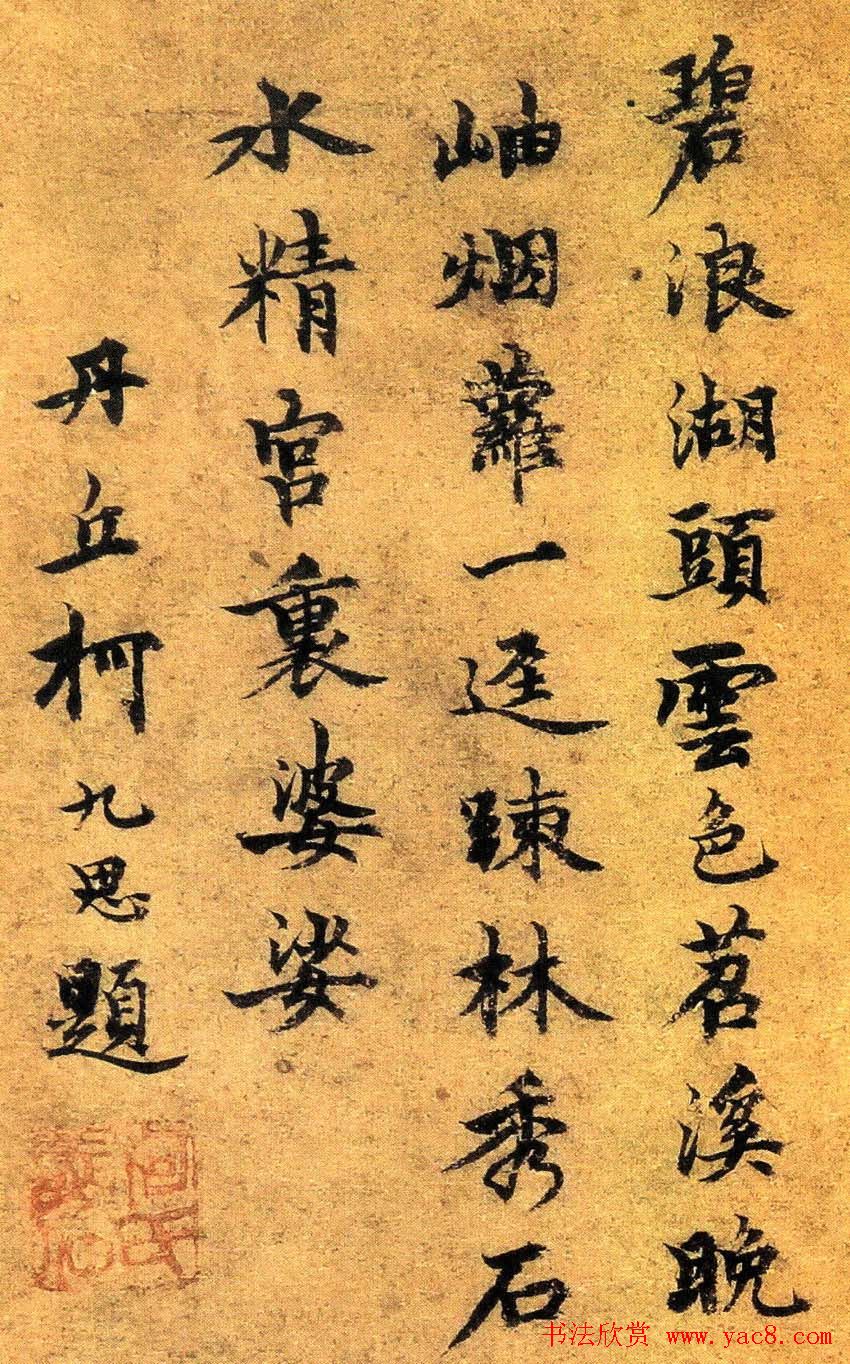 碧浪湖頭雲色苕溪晚
岫烟蘿一迳踈林秀石
水精宮裏婆娑
丹丘柯九思題
书法欣赏 www.yac8.com